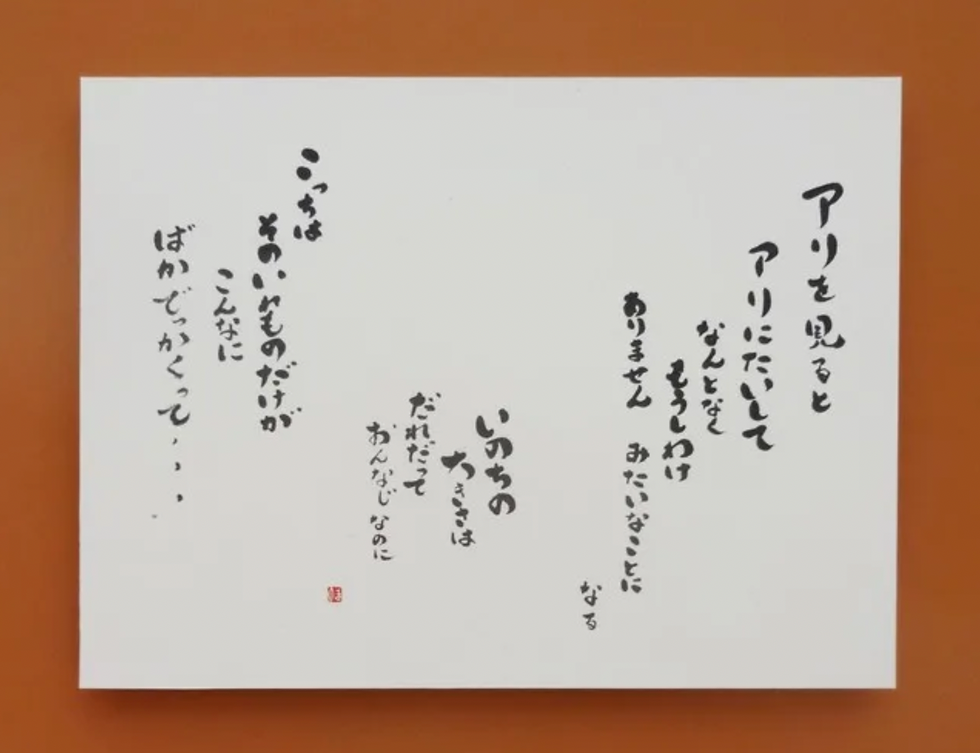 アリを見ると
アリにたいして
なんとなく
もうしわけ
ありません みたいなことに
なる
いのちの
大きさは
だれだって
おんなじなのに
こっちは
そのいれものだけが
こんなに
ばかでっかくって、、、